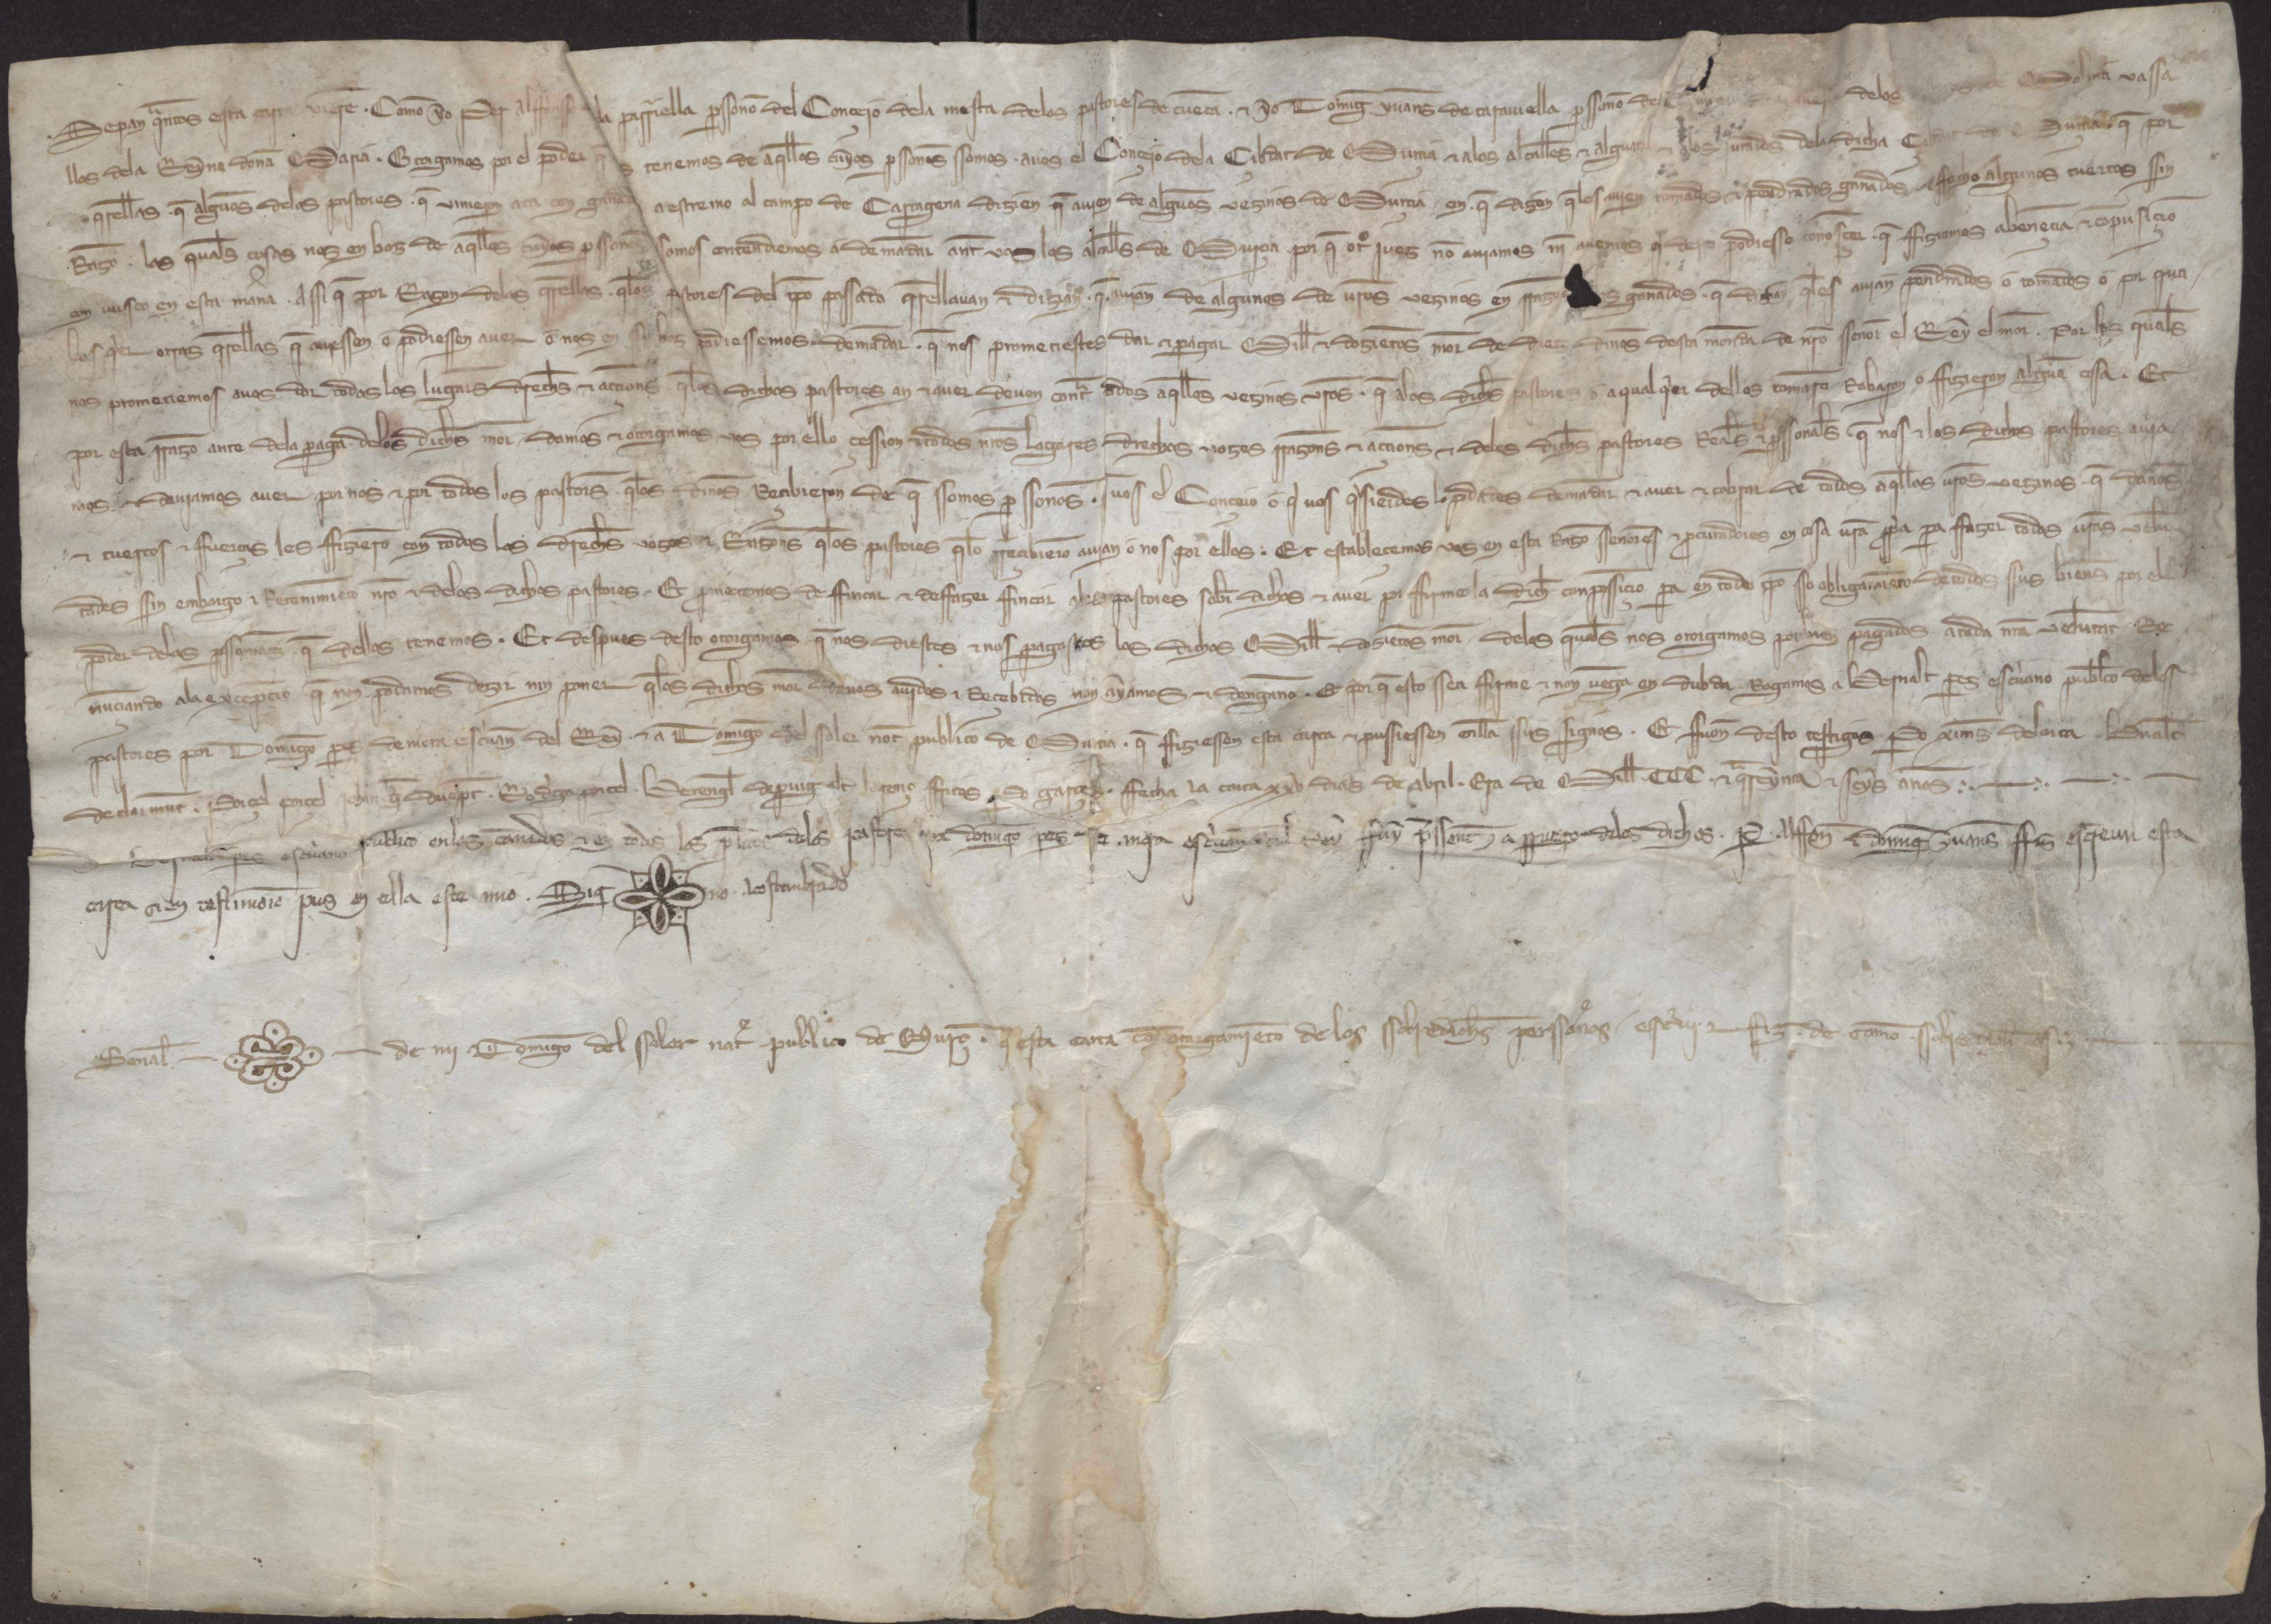 Sepan quantos esta carta vieren. Como yo Per Alffonso de la parriella perssono del Conceio dela mesta delos pastores de cuenca. & yo Domingo yuans de caravuella perssono de delos Molina vassa
llos dela Reyna dona Maria. Otorgamos por el poder que nos tenemos de aquellos cuyos perssonos ssomos. avos el Conceio dela Cibdat de Murcia & alos alcalles & alguazil & alos jurados dela dicha Cibdat de Murcia. que por
querellas. que algunos delos pastores. que vinieron aca con ganado a estremo al campo de Cartagena dizien que auien de algunos vezinos de Murcia en que dizen que les auien tomados & pendrados ganados & fecho algunos tuertos ssin
Razon. las quales cosas nos en boz de aquellos cuyos perssonos somos entendiemos a demandar ante vos los alcalles de Murcia por que otro juez no auiamos ni auemos que desto podiesse conoscer. que ffiziemos abenencia & conpusicion
con vusco en esta manera. Assi que por Razon delas querellas. quelos pastores del tiempo passado querellauan & dizian. que auian de algunos de uestros vezinos en rrazon ganados. que dizian que les auian pendrados o tomados o por qua
les quier otras querellas que ouiessen o podiessen auer o nos en su boz podiessemos demandar. que nos prometiestes dar & pagar Mill & dozientos mor de diez dineros desta moneda de nuestro senor el Rey el mor. Por los quales
nos prometiemos auos dar todos los lugares drechos & acciones quelos dichos pastores an & auer deuen contra todos aquellos vezinos uestros. que alos dichos pastores o a qualquier dellos tomaron Robaron o ffizieron alguna cosa. Et
por esta rrazon ante dela paga delos dichos mor damos & otorgamos vos por ello cession & todos nuestros lugares drechos vozes rrazones & acciones & delos dichos pastores Reales & perssonales que nos & los dichos pastores auia
mos & deuiamos auer por nos & por todos los pastores quelos dineros Recibieron de que ssomos perssonos. que vos el Conceio o qui vos quisieredes podades demandar & auer & cobrar de todos aquellos uestros vezinos que danos
& tuertos & fuerças les ffizieron con todos los drechos vozes & Razones quelos pastores quelo rrecibieron auian o nos por ellos. Et establecemos vos en esta Razon senores & procuradores en cosa uestra propia pora ffazer todas uestras volun
tades ssin enbargo & Retenimiento nuestro & delos dichos pastores. Et prometemos de ffincar & deffazer fincar alos pastores sobre dichos & auer por ffirme la dicha conposicion pora en todo tiempo sso obligamiento de todos sus bienes por el
poder delos perssonos. que dellos tenemos. Et despues desto otorgamos que nos diestes & nos pagastes los dichos Mill dozientos mor delos quales nos otorgamos por bien pagados a toda nuestra voluntat. Re
nunciando ala excepcion que non podamos dezir nin poner quelos dichos mor de vos auidos & Recebidos non ayamos & dengano. Et por que esto sea ffirme & non venga en dubda. Rogamos a Bernalt perez escriuano publico delos
pastores por Domingo perez de mora escriuano del Rey. & a Domingo del soler notario publico de Murcia. que ffiziessen esta carta & pusiessen enella sus signos. Et fueron desto testigos Pero xemenez de lorca. Bernalt
de claramunt. Porcel porcel Rodrigo porcel. Berenguel de puig ffites pero garcia. ffecha la carta xxv dias de Abril. Era de Mill. CCC. & quareynta & seys anos
perez escriuano publico enlas cannadas & en todas las delos pastores por domingo perez de mora escriuano del rey fuy pressente a rruego delos dichos. Per Alffonso & domingo yuans ffiz escreuir esta
carta & en testimonio pus en ella este mio. Sig no acostumbrado
Senal de mi Domingo del soler notario publico de Murcia. que esta carta con otorgamiento de los ssobredichos perssoneros escriui & fiz. de como sobredicho es